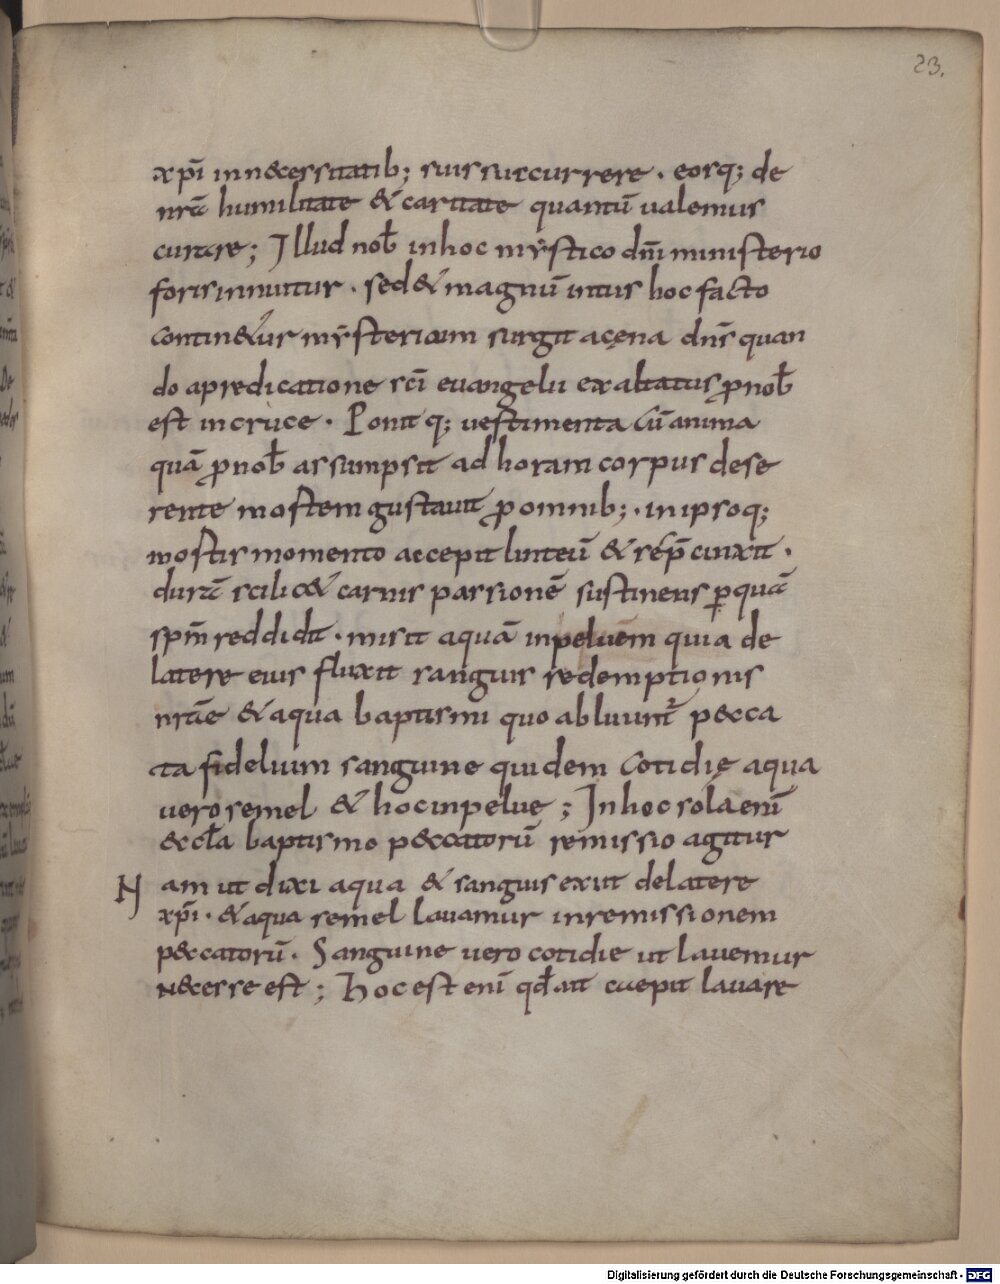 23.
xp̄i in necessitatib; suis succurrere . eosq; de
nr̄a humilitate & caritate quantū ualemus
curare; Illud nob̄ in hoc mẏstico dn̄i ministerio
foris innuitur . sed & magnū intus hoc facto
contin&ur mẏsterium surgit a cęna dn̄s quan
do a predicatione sc̄i euangelii exaltatus ꝓ nob̄
est in cruce . Ponit q; uestimenta cū anima
quā ꝓ nob̄ assumpsit ad horam corpus dese
rente mortem gustauit ꝓ omnib; . in ipsoq;
mortis momento accepit linteū & se p̄cinxit .
durā scilic& carnis passionē sustinens ꝑ quā
sp̄m reddidit . misit aquā in peluem quia de
latere eius fluxit sanguis redemptionis
nr̄ae & aqua baptismi quo abluunt᷑ pecca
ta fidelium sanguine quidem cotidię aqua
uero semel & hoc in peluę ; In hoc sola eni̅
&cl̄a baptismo p&ccatorū remissio agitur
N am ut dixi aqua & sanguis exiit de latere
xp̄i . & aqua semel lauamur in remissionem
p&ccatorū . Sanguine uero cotidie ut lauemur
n&cesse est ; Hoc est eni̅ qd̄ ait cuepit lauare
Digitalisierung gefördert durch die Deutsche Forschungsgemeinschaft - DFG